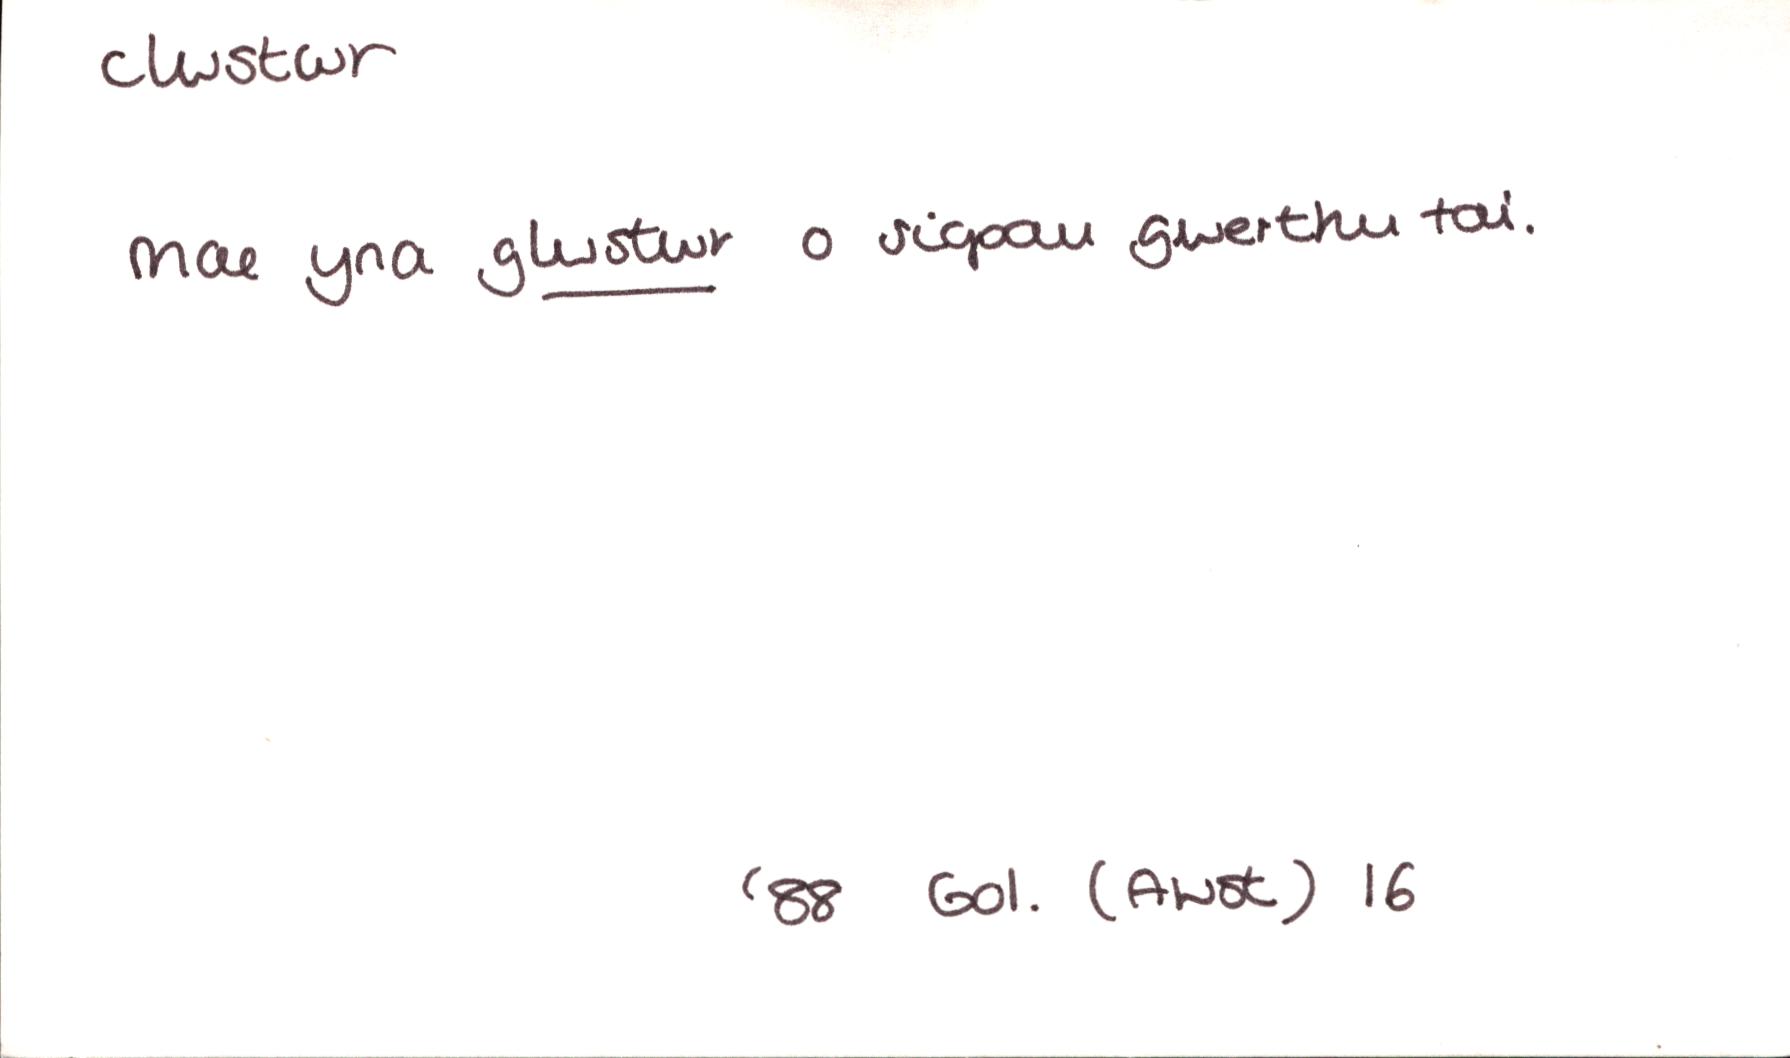 clwstwr
mae yna glwstwr o siopau gwerthu tai.
'88 Gol. (Awst) 16